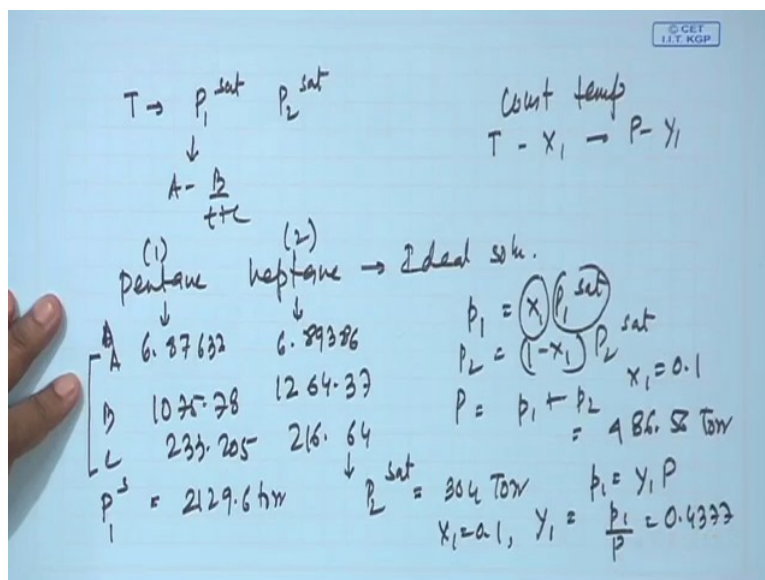 © CET
I.I.T. KGP
T → P₁ˢᵃᵗ P₂ˢᵃᵗ
↓
A - B/(t+c)
Const temp
T - x₁ → P - y₁
(1) (2)
pentane heptane → Ideal soln.
↓ ↓
A 6.87632 6.89386
B 1075.78 1264.37
C 233.205 216.64
P₁ˢ = 2129.6 torr
↓
P₂ˢᵃᵗ = 304 Torr
p₁ = x₁ P₁ˢᵃᵗ
p₂ = (1-x₁) P₂ˢᵃᵗ
x₁ = 0.1
P = p₁ + p₂
= 486.56 Torr
p₁ = y₁P
x₁=0.1, y₁ = p₁/P = 0.4377